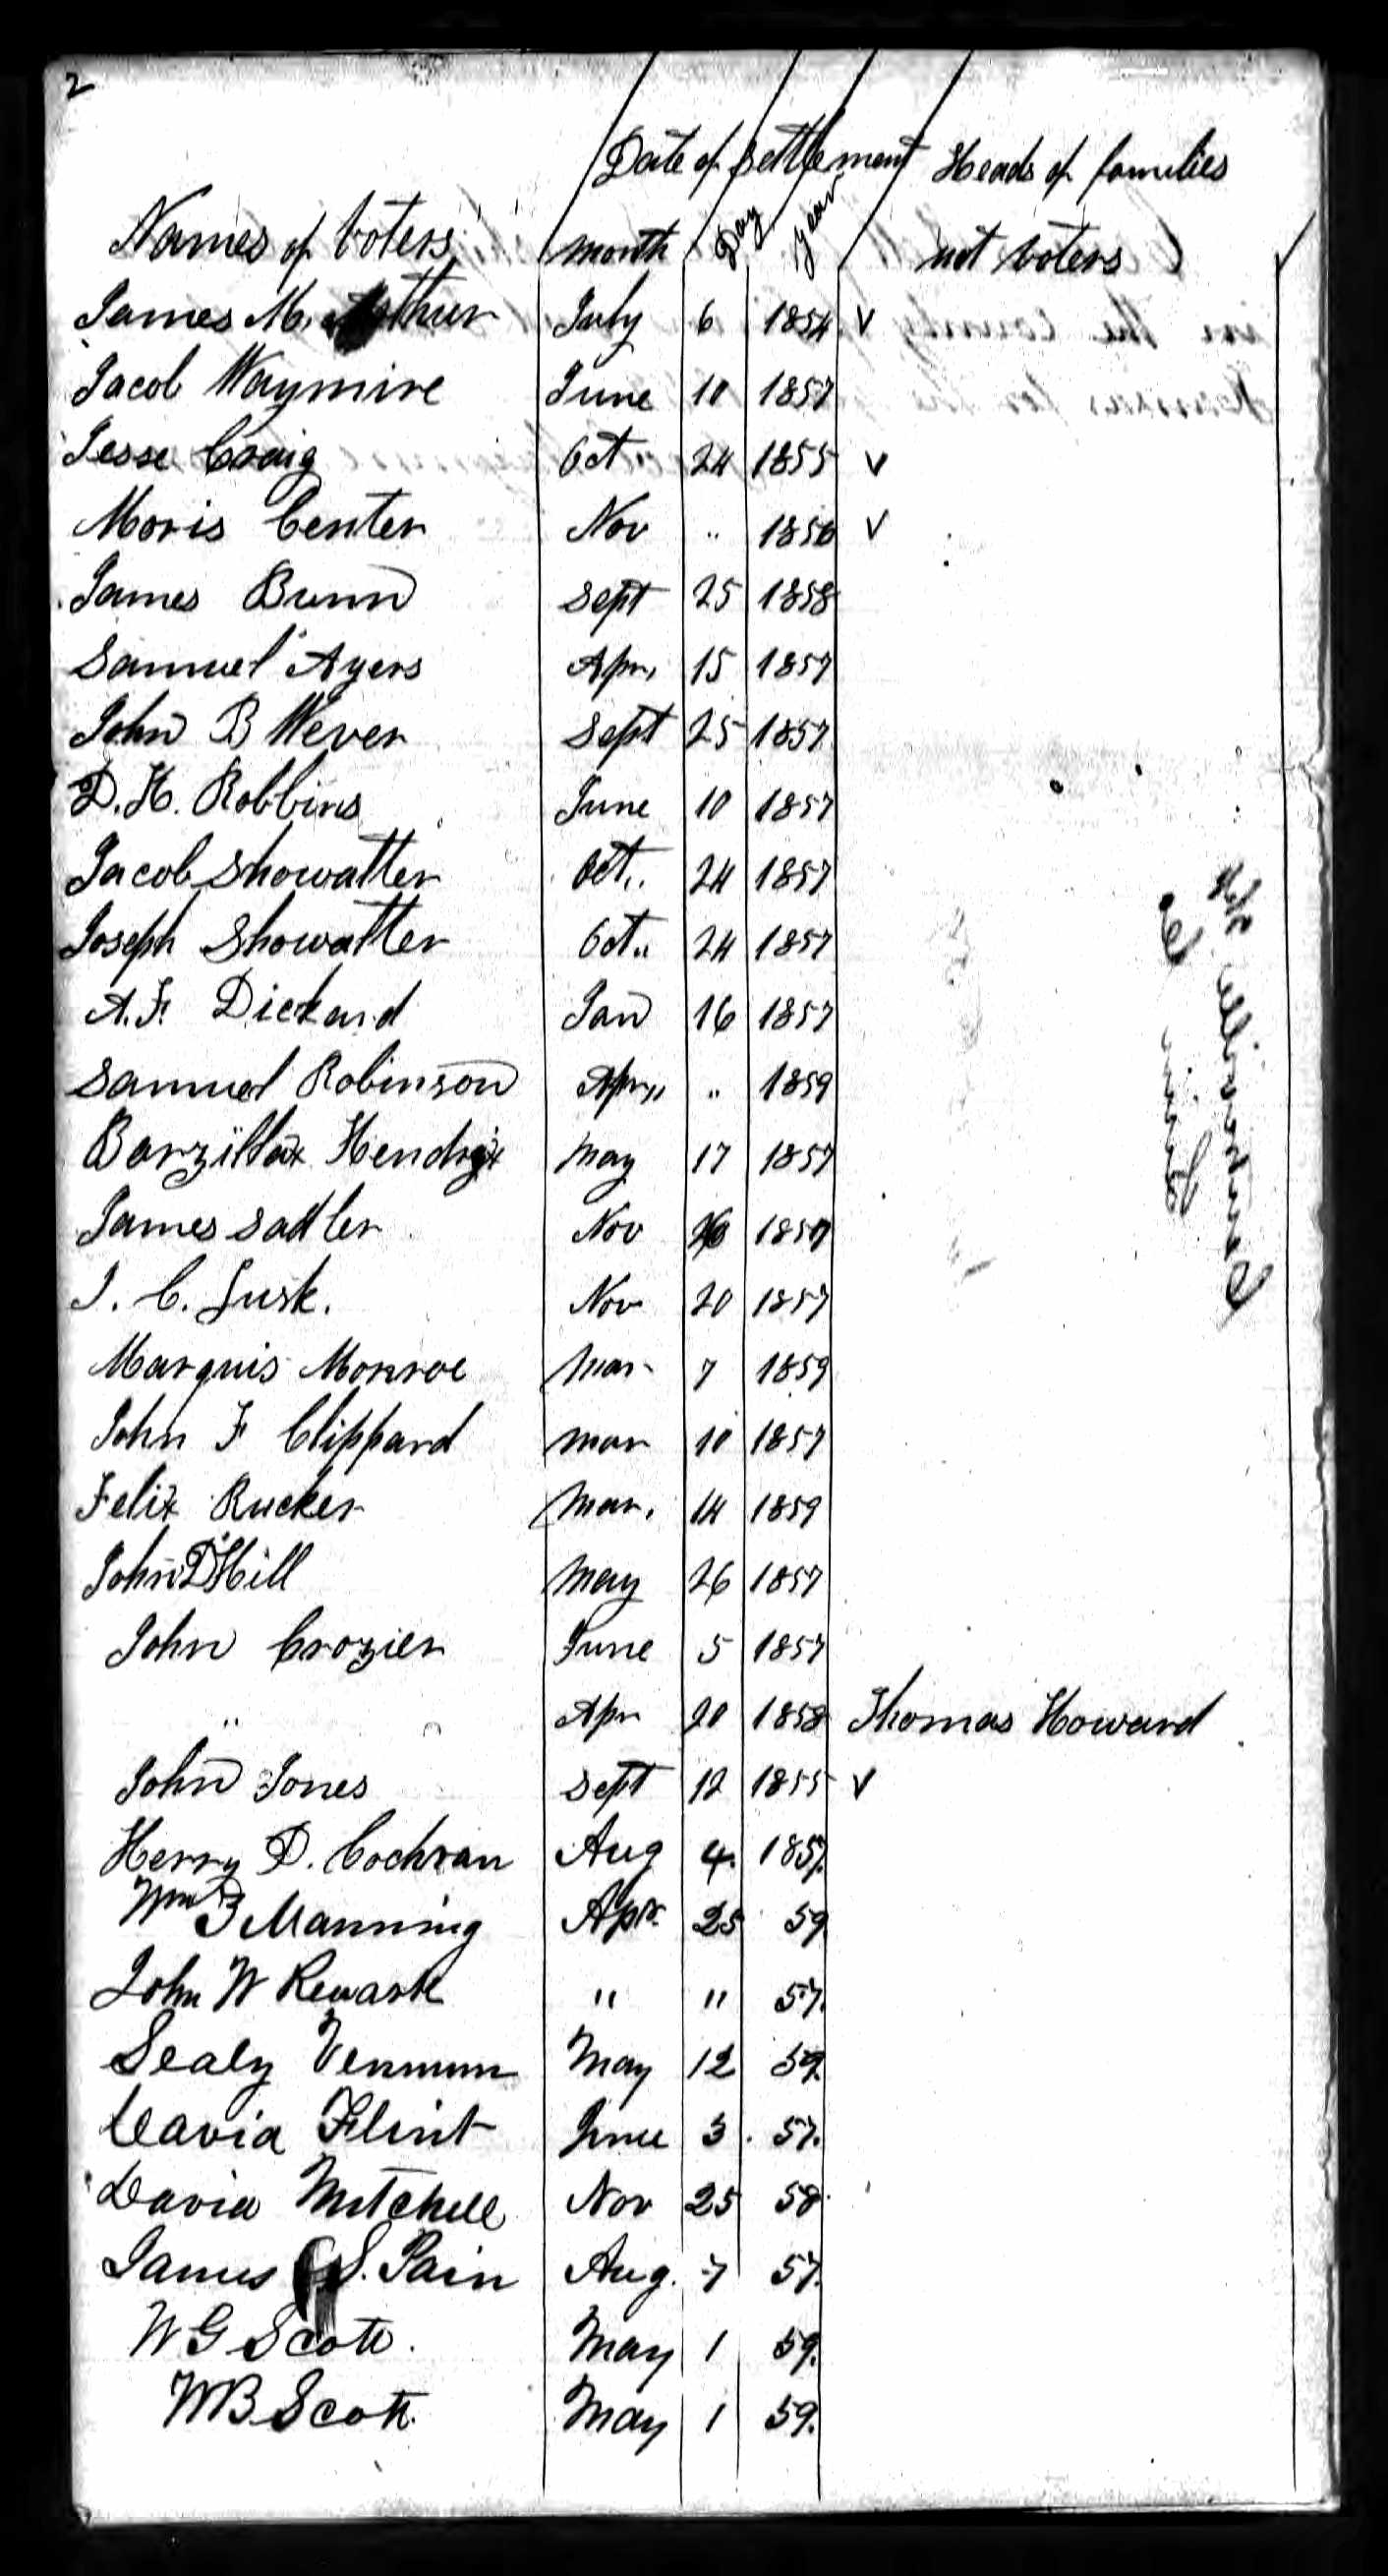 2
Date of Settlement Heads of families
Names of Voters month Day year not voters
James M. Arthur July 6 1854 V
Jacob Waymire June 10 1857
Jesse Craig Oct 24 1855 V
Moris Center Nov " 1856 V
James Bunn Sept 25 1858
Samuel Ayers Apr, 15 1857
John B Wever Sept 25 1857
D. H. Robbins June 10 1857
Jacob Showalter Oct.. 24 1857
Joseph Showalter Oct.. 24 1857
A. F. Dickard Jan 16 1857
Samuel Robinson Apr,, " 1859
Barzillax Hendrix May 17 1857
James Sadler Nov 1857
J. C. Lusk. Nov 20 1857
Marquis Monroe Mar 7 1859
John F Clippard Mar 10 1857
Felix Rucker Mar. 14 1859
John D Hill May 26 1857
John Crozier June 5 1857
" Apr 20 1858 Thomas Howard
John Jones Sept 12 1855 V
Henry D. Cochran Aug 4. 1857.
Wm Manning Apr. 25 59
John W Rewark " " 57.
Sealy Vennum May 12 59.
David Flint June 3 57.
David Mitchell Nov 25 58
James S. Pain Aug. 7 57.
W G Scott. May 1 59.
W B Scott. May 1 59.